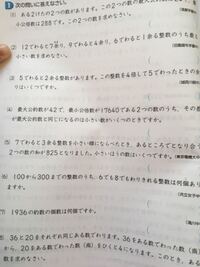 1 次の問いに答えなさい。
(1) ある2けたの2つの数があります。この2つの数の最大公
小公倍数は288です。この2つの数を求めなさい。
(2) 12でわると7余り、9でわると4余り、6でわると1余る整数のうち
小さい数を求めなさい。
(3) 5でわると2余る整数があります。この整数を4倍して5でわったときの余
りはいくつですか。
(4) 最大公約数が42で、最小公倍数が17640である2つの数のうち、その
が最大公約数と同じになるのは小さい数がいくつのときですか。
(5) 7でわると3余る数を小さい順にならべたとき、あるところでとなり合う
2つの数の和が825となりました。小さいほうの数はいくつですか。
(6) 100から300までの整数のうち、6でも8でもわりきれる整数は何個あり
ますか。
(7) 1936の約数の個数は何個ですか。
(8) 36と20をそれぞれ同じある数でわります。36をある数でわった
から、20をある数でわった数(商)をひくと4になります。このとき、ある
数を求めなさい。